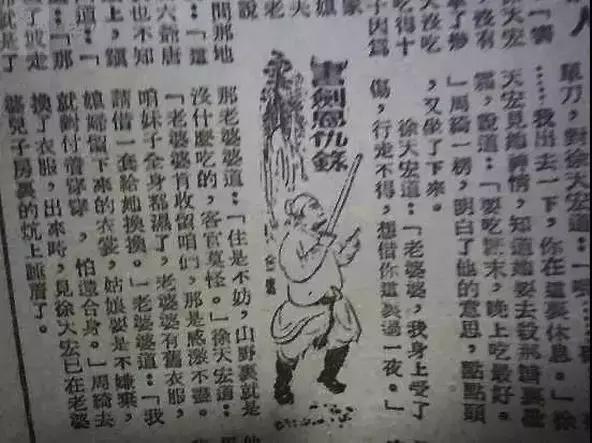 徐天宏
沒有
拿了幾
沒吃
吃得十
子因爲
家
旗
夫
老
說
間那地
「這
也不知
六爺唐
道：「
上，鎮
「那
就是了
單刀，對徐天宏道：「
……我出去一下，你在這裏休息。」徐
天宏見她神情，知道她要去
霜，說道：「要吃末，晚上吃最好。
」周綺一楞，明白了他的意思，點點頭
，又坐了下來。
徐天宏道：「老婆婆，我身上受了
傷，行走不得，想借你這裏過一夜。」
書劍恩仇錄
那老婆婆道：「住是不妨，山野裏就是
沒什麼吃的，客官莫怪。」徐天宏道：
「老婆婆肯收留咱們，那是感激不盡。
咱妹子全身都濕了，老婆婆有舊衣服，
請借一套給她換換。」老婆婆道：「我
媳婦留下來的衣裳，姑娘要是不嫌棄，
就對付着穿穿，怕還合身。」周綺去
換了衣服，出來時，見徐天宏已在老婆
婆兒子房裏的炕上睡着了。